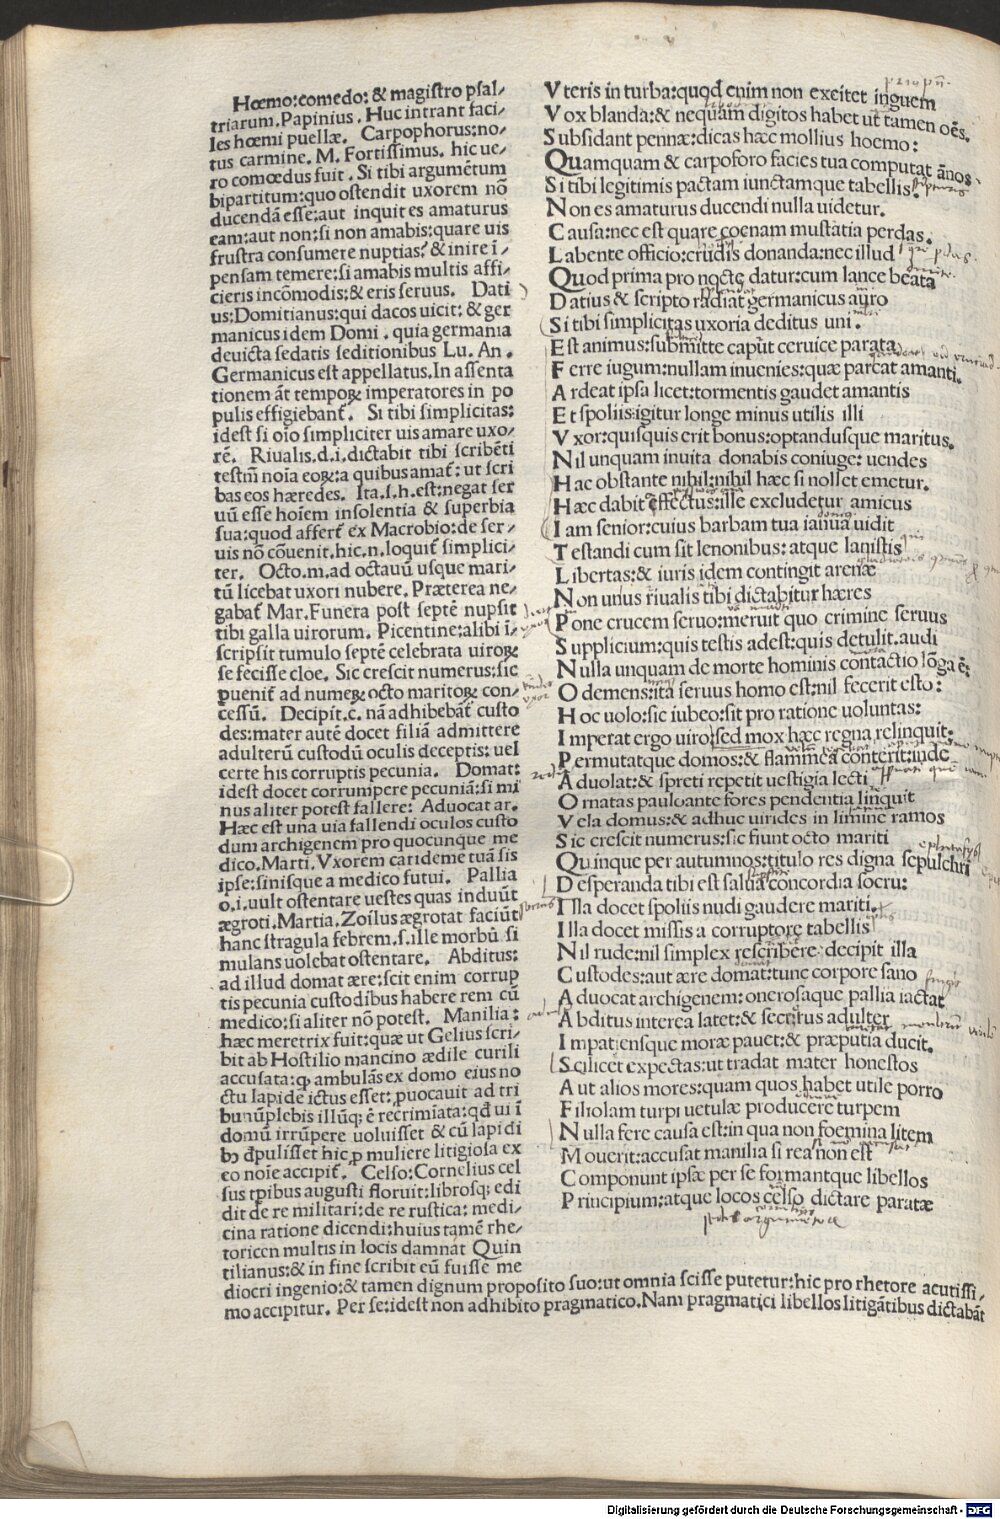 Hœmo:comedo: & magistro psal-
triarum. Papinius. Huc intrant faci-
les hœmi puellæ. Carpophorus: no-
tus carmine. M. Fortissimus. hic ue-
ro comœdus fuit. Si tibi argumētum
bipartitum: quo ostendit uxorem nō
ducendā esse: aut inquit es amaturus
eam: aut non: si non amabis: quare uis
frustra consumere nuptias? & inire ī-
pensam temere: si amabis multis affi-
cieris incōmodis: & eris seruus. Dati
us: Domitianus: qui dacos uicit: & ger
manicus idem Domi. quia germania
deuicta sedatis seditionibus Lu. An.
Germanicus est appellatus. In assenta
tionem āt tempoꝝ imperatores in po
pulis effigiebant̄. Si tibi simplicitas:
idest si oīo simpliciter uis amare uxo-
rē. Riualis. d. i. dictabit tibi scribēti
testm̄ noīa eoꝝ: a quibus amat̄: ut scri
bas eos hæredes. Ita. s. h. est: negat ser
uū esse hoīem insolentia & superbia
sua: quod affert̄ ex Macrobio: de ser-
uis nō cōuenit. hic. n. loquit̄ simplici-
ter. Octo. m. ad octauū usque mari-
tū licebat uxori nubere. Præterea ne-
gabat̄ Mar. Funera post septē nupsit
tibi galla uirorum. Picentine: alibi ī-
scripsit tumulo septē celebrata uiroꝝ
se fecisse cloe. Sic crescit numerus: sic
puenit̄ ad numeꝝ octo maritoꝝ con-
cessū. Decipit. c. nā adhibebāt̄ custo
des: mater autē docet filiā admittere
adulterū custodū oculis deceptis: uel
certe his corruptis pecunia. Domat:
idest docet corrumpere pecuniā: si mi
nus aliter potest fallere: Aduocat ar.
Hæc est una uia fallendi oculos custo
dum archigenem pro quocunque me
dico. Marti. Vxorem carideme tuā sis
ipse: sinisque a medico futui. Pallia
o. i. uult ostentare uestes quas induūt
ægroti. Martia. Zoilus ægrotat faciūt
hanc stragula febrem. s. ille morbū si
mulans uolebat ostentare. Abditus:
ad illud domat ære: scit enim corrup
tis pecunia custodibus habere rem cū
medico: si aliter nō potest. Manilia:
hæc meretrix fuit: quæ ut Gelius scri-
bit ab Hostilio mancino ædile curili
accusata: ꝙ ambulās ex domo eius no
ctu lapide ictus esset: ꝓuocauit ad tri
bunūplebis illūq; ē recrimīata: qd̄ ui ī
domū irrūpere uoluisset & cū lapidi
bꝰ dꝑulisset hic ꝓ muliere litigiosa ex
eo noīe accipit̄. Celso: Cornelius cel
sus tp̄ibus augusti floruit: librosq; edi
dit de re militari: de re rustica: medi-
cina ratione dicendi: huius tamē rhe-
toricen multis in locis damnat Quin
tilianus: & in fine scribit eū fuisse me
diocri ingenio: & tamen dignum proposito suo: ut omnia scisse putetur: hic pro rhetore acutissi-
mo accipitur. Per se: idest non adhibito pragmatico. Nam pragmatici libellos litigātibus dictabāt
Vteris in turba: quod enim non excitet inguem
Vox blanda: & nequam digitos habet ut tamen oēs.
Subsidant pennæ: dicas hæc mollius hoemo:
Quamquam & carpoforo facies tua computat ānos
Si tibi legitimis pactam iunctamque tabellis.
Non es amaturus ducendi nulla uidetur.
Causa: nec est quare coenam mustatia perdas.
Labente officio: crudis donanda: nec illud
Quod prima pro nocte datur: cum lance beata
Datius & scripto radiat germanicus auro
Si tibi simplicitas uxoria deditus uni.
Est animus: submitte caput ceruice parata
Ferre iugum: nullam inuenies: quæ parcat amanti.
Ardeat ipsa licet: tormentis gaudet amantis
Et spoliis: igitur longe minus utilis illi
Vxor: quisquis erit bonus: optandusque maritus.
Nil unquam inuita donabis coniuge: uendes
Hac obstante nihil: nihil hæc si nollet emetur.
Hæc dabit effectus: ille excludetur amicus
Iam senior: cuius barbam tua ianua uidit
Testandi cum sit lenonibus: atque lanistis
Libertas: & iuris idem contingit arenæ
Non unus riualis tibi dictabitur hæres
Pone crucem seruo: meruit quo crimine seruus
Supplicium: quis testis adest: quis detulit. audi
Nulla unquam de morte hominis contactio lōga ē:
O demens: ita seruus homo est: nil fecerit esto:
Hoc uolo: sic iubeo: sit pro ratione uoluntas:
Imperat ergo uiro: sed mox hæc regna relinquit:
Permutatque domos: & flammea conterit: inde
Aduolat: & spreti repetit uestigia lecti
Ornatas pauloante fores pendentia linquit
Vela domus: & adhuc uirides in limine ramos
Sic crescit numerus: sic fiunt octo mariti
Quinque per autumnos: titulo res digna sepulchri
Desperanda tibi est salua concordia socru:
Illa docet spoliis nudi gaudere mariti.
Illa docet missis a corruptore tabellis
Nil rude: nil simplex rescribere: decipit illa
Custodes: aut ære domat: tunc corpore sano
Aduocat archigenem: onerosaque pallia iactat
Abditus interea latet: & secretus adulter
Impatiensque moræ pauet: & præputia ducit.
Scilicet expectas: ut tradat mater honestos
Aut alios mores: quam quos habet utile porro
Filiolam turpi uetulæ producere turpem
Nulla fere causa est: in qua non foemina litem
Mouerit: accusat manilia si rea non est
Componunt ipsæ per se formantque libellos
Principium: atque locos celso dictare paratæ
Digitalisierung gefördert durch die Deutsche Forschungsgemeinschaft - DFG